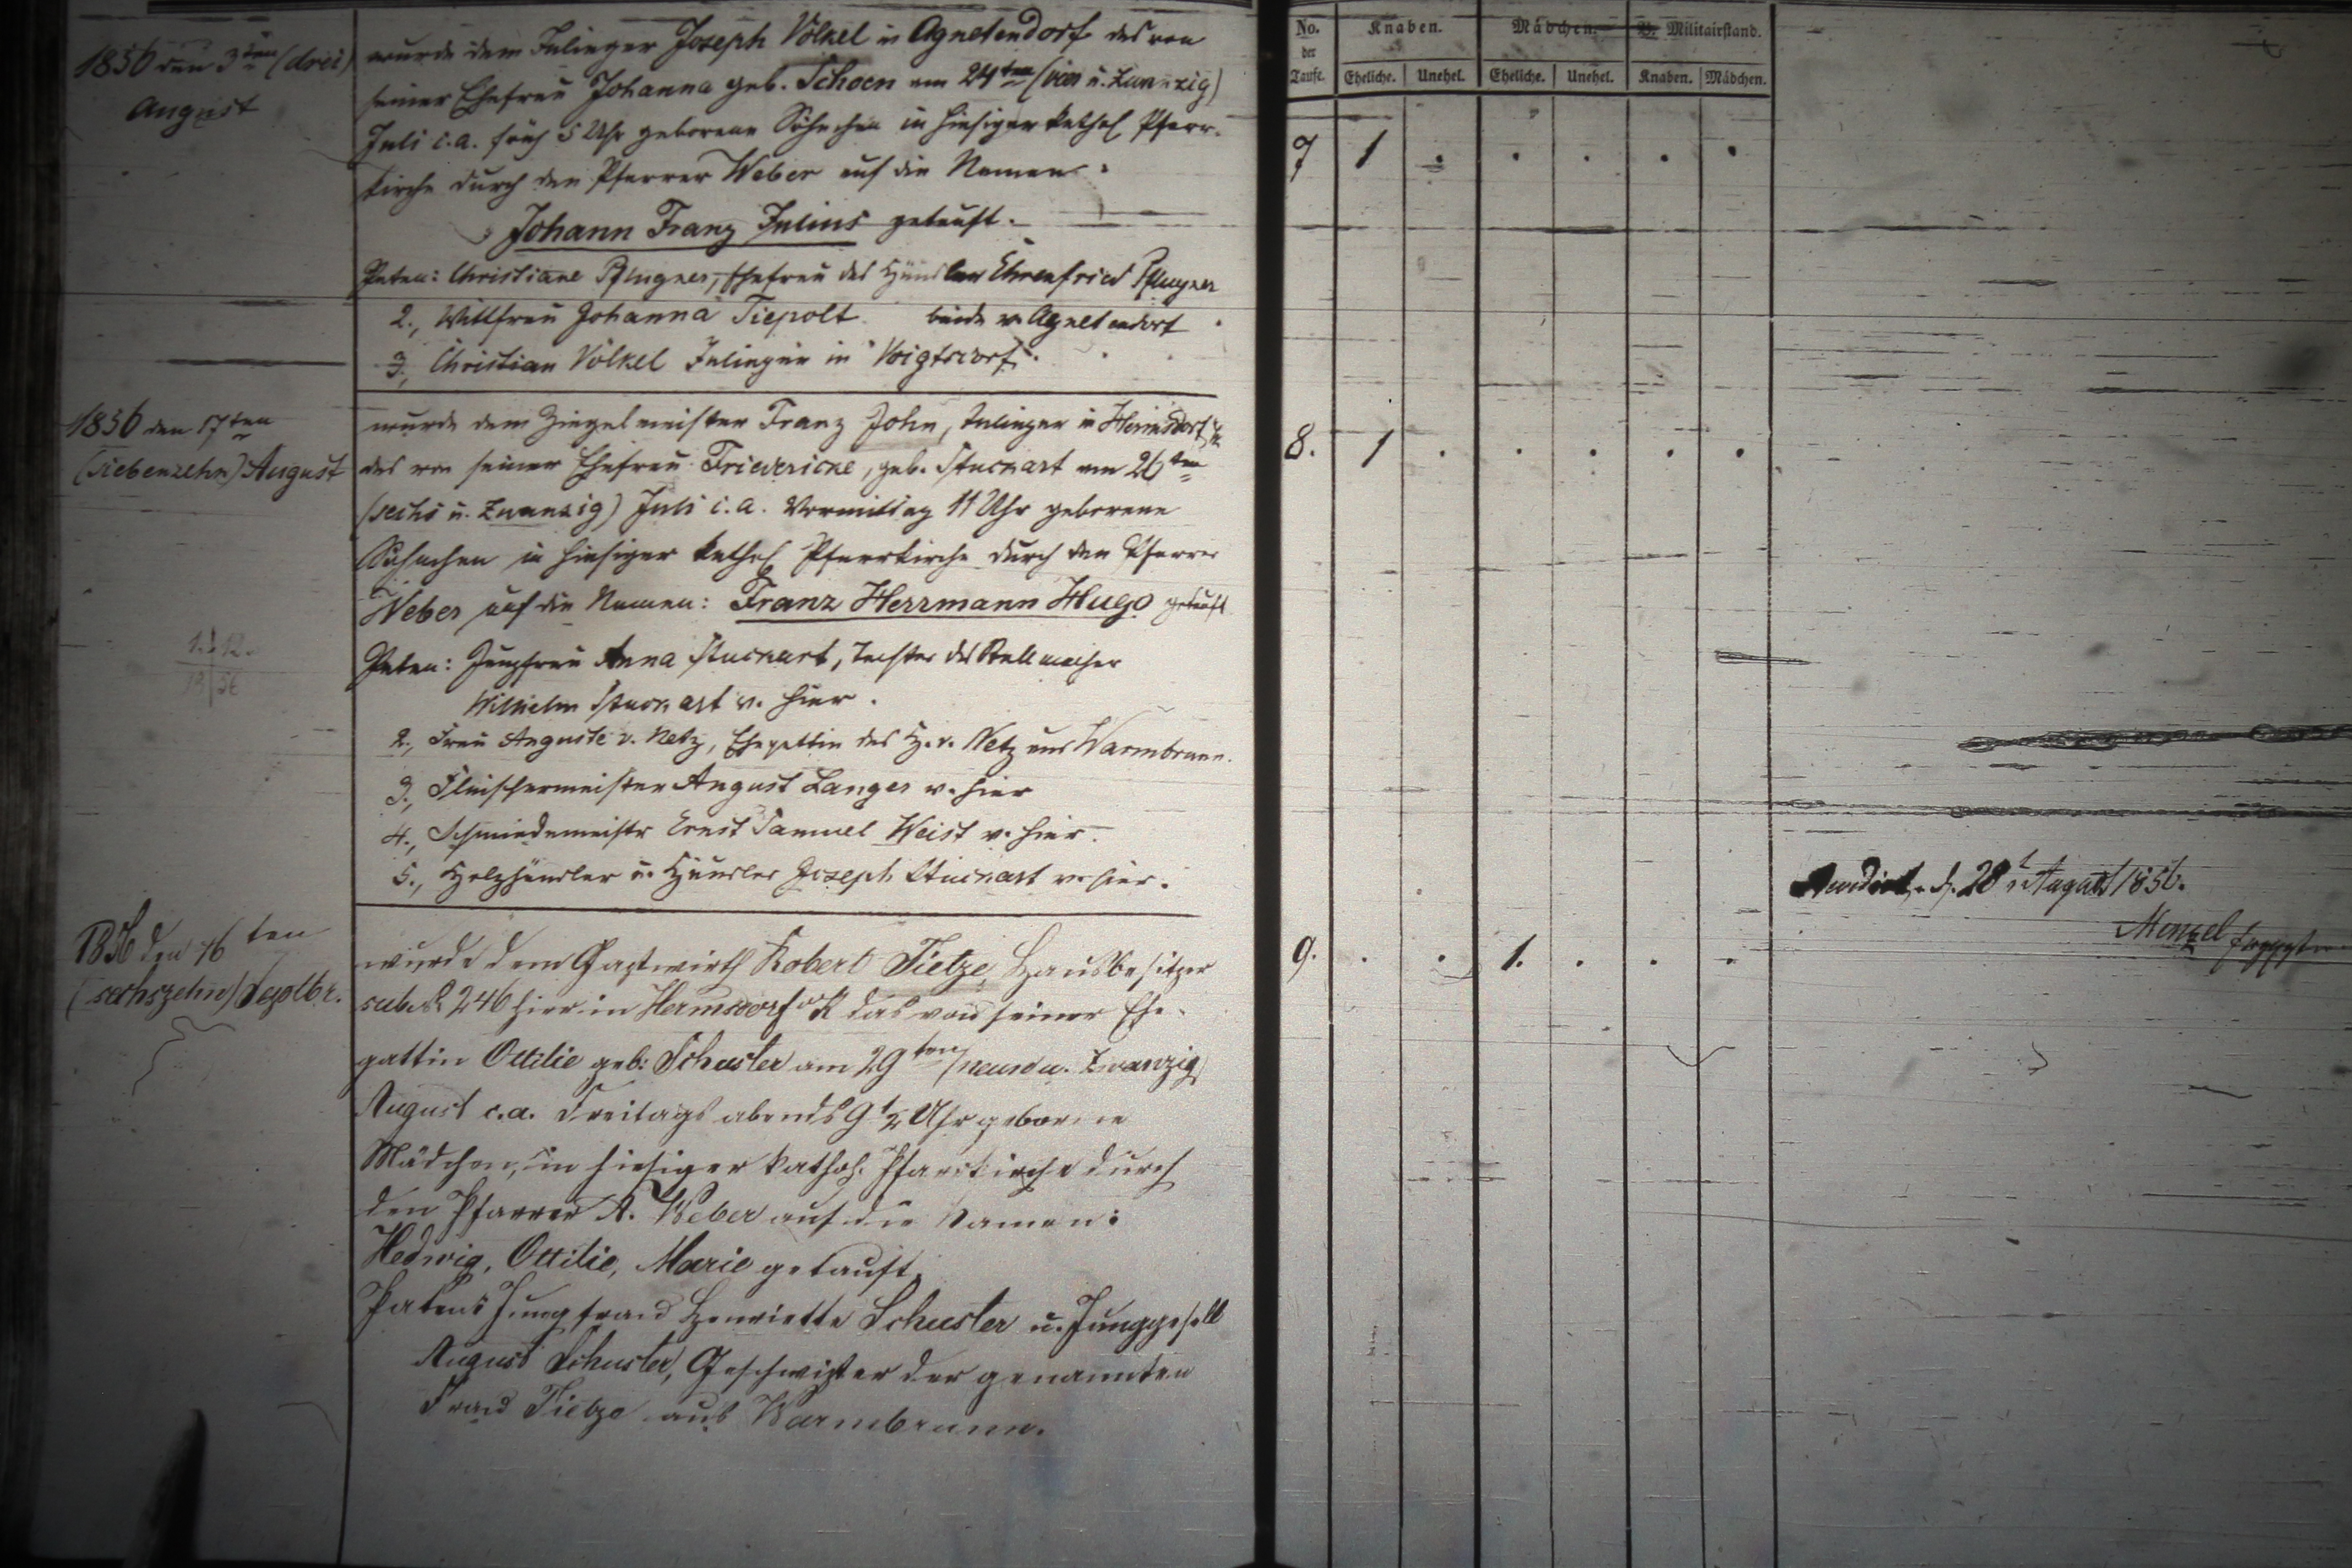 1856 den 3ten (drei)
August
wurde dem Inlieger Joseph Völkel in Agnetendorf das von
seiner Ehefrau Johanna geb. Schoen am 24ten (vier u. zwanzig)
Juli c. a. früh 5 Uhr geborene Söhnchen in hiesiger kathol Pfarr-
kirche durch den Pfarrer Weber auf die Namen:
Johann Franz Julius getauft.
Paten: Christiane Pflugner, Ehefrau des Häusler Ehrenfried Pflugner
2., Wittfrau Johanna Tiepolt beide v. Agnetendorf
3., Christian Völkel Inlieger in Voigtsdorf.
1856 den 17ten
(siebenzehn) August
wurde dem Ziegelmeister Franz John, Inlieger in Hermsdorf
das von seiner Ehefrau Friedericke, geb. Stuckart am 26ten
(sechs u. zwanzig) Juli c. a. Vormittag 11 Uhr geborene
Söhnchen in hiesiger kathol Pfarrkirche durch den Pfarrer
Weber auf die Namen: Franz Herrmann Hugo getauft
Paten: Jungfrau Anna Stuckart, Tochter des Stellmacher
Wilhelm Stuckart v. hier.
2., Frau Auguste v. Netz, Ehegattin des H. v. Netz aus Warmbrunn.
3., Fleischermeister August Langer v. hier
4., Schmiedemeistr Ernst Samuel Weist v. hier.
5., Holzhändler u. Häusler Joseph Stuckart v. hier.
1856 den 16ten
(sechszehn) Septbr.
wurde dem Gastwirth Robert Tietze, Hausbesitzer
sub No 246 hier in Hermsdorf u/K das von seiner Ehe-
gattin Ottilie geb: Schuster am 29ten (neun u. zwanzig)
August c. a. Freitags abends 9 1/2 Uhr geborene
Mädchen, in hiesiger kathol. Pfarrkirche durch
den Pfarrer A. Weber auf die Namen:
Hedwig, Ottilie, Marie getauft.
Pathens Jungfrau Henriette Schuster u. Junggesell
August Schuster, Geschwister der genannten
Frau Tietze aus Warmbrunn.
No. der Taufe. Knaben. Mädchen. B. Militairstand.
Eheliche. Unehel. Eheliche. Unehel. Knaben. Mädchen.
7 1 . . . . .
8. 1 . . . . .
9. . . 1. . . .
d. 28t August 1856.
Menzel